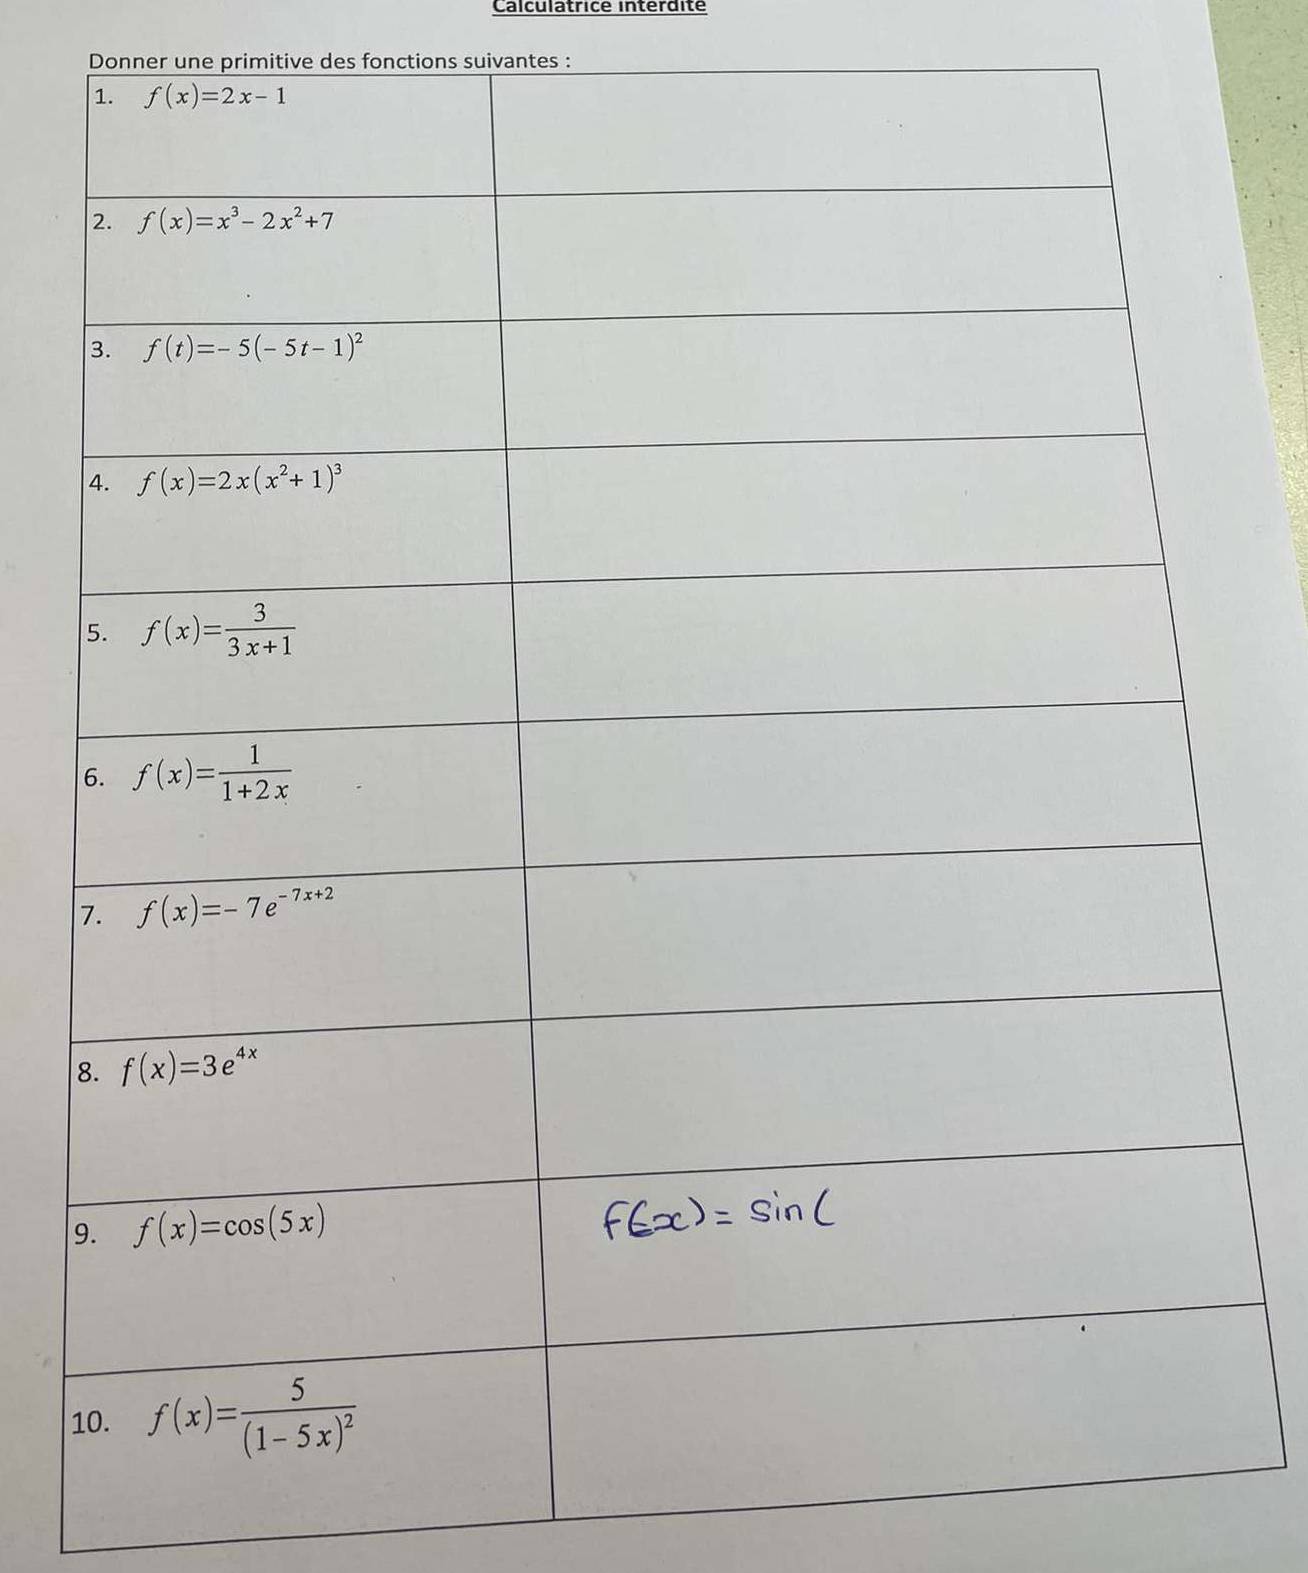 Calculatrice interdite
Donner une primitive des fonctions suivantes :
1. f(x)=2x-1
2. f(x)=x³-2x²+7
3. f(t)=-5(-5t-1)²
4. f(x)=2x(x²+1)³
5. f(x)=3/(3x+1)
6. f(x)=1/(1+2x)
7. f(x)=-7e^(-7x+2)
8. f(x)=3e^(4x)
9. f(x)=cos(5x)
F(x)= sin(
10. f(x)=5/(1-5x)²